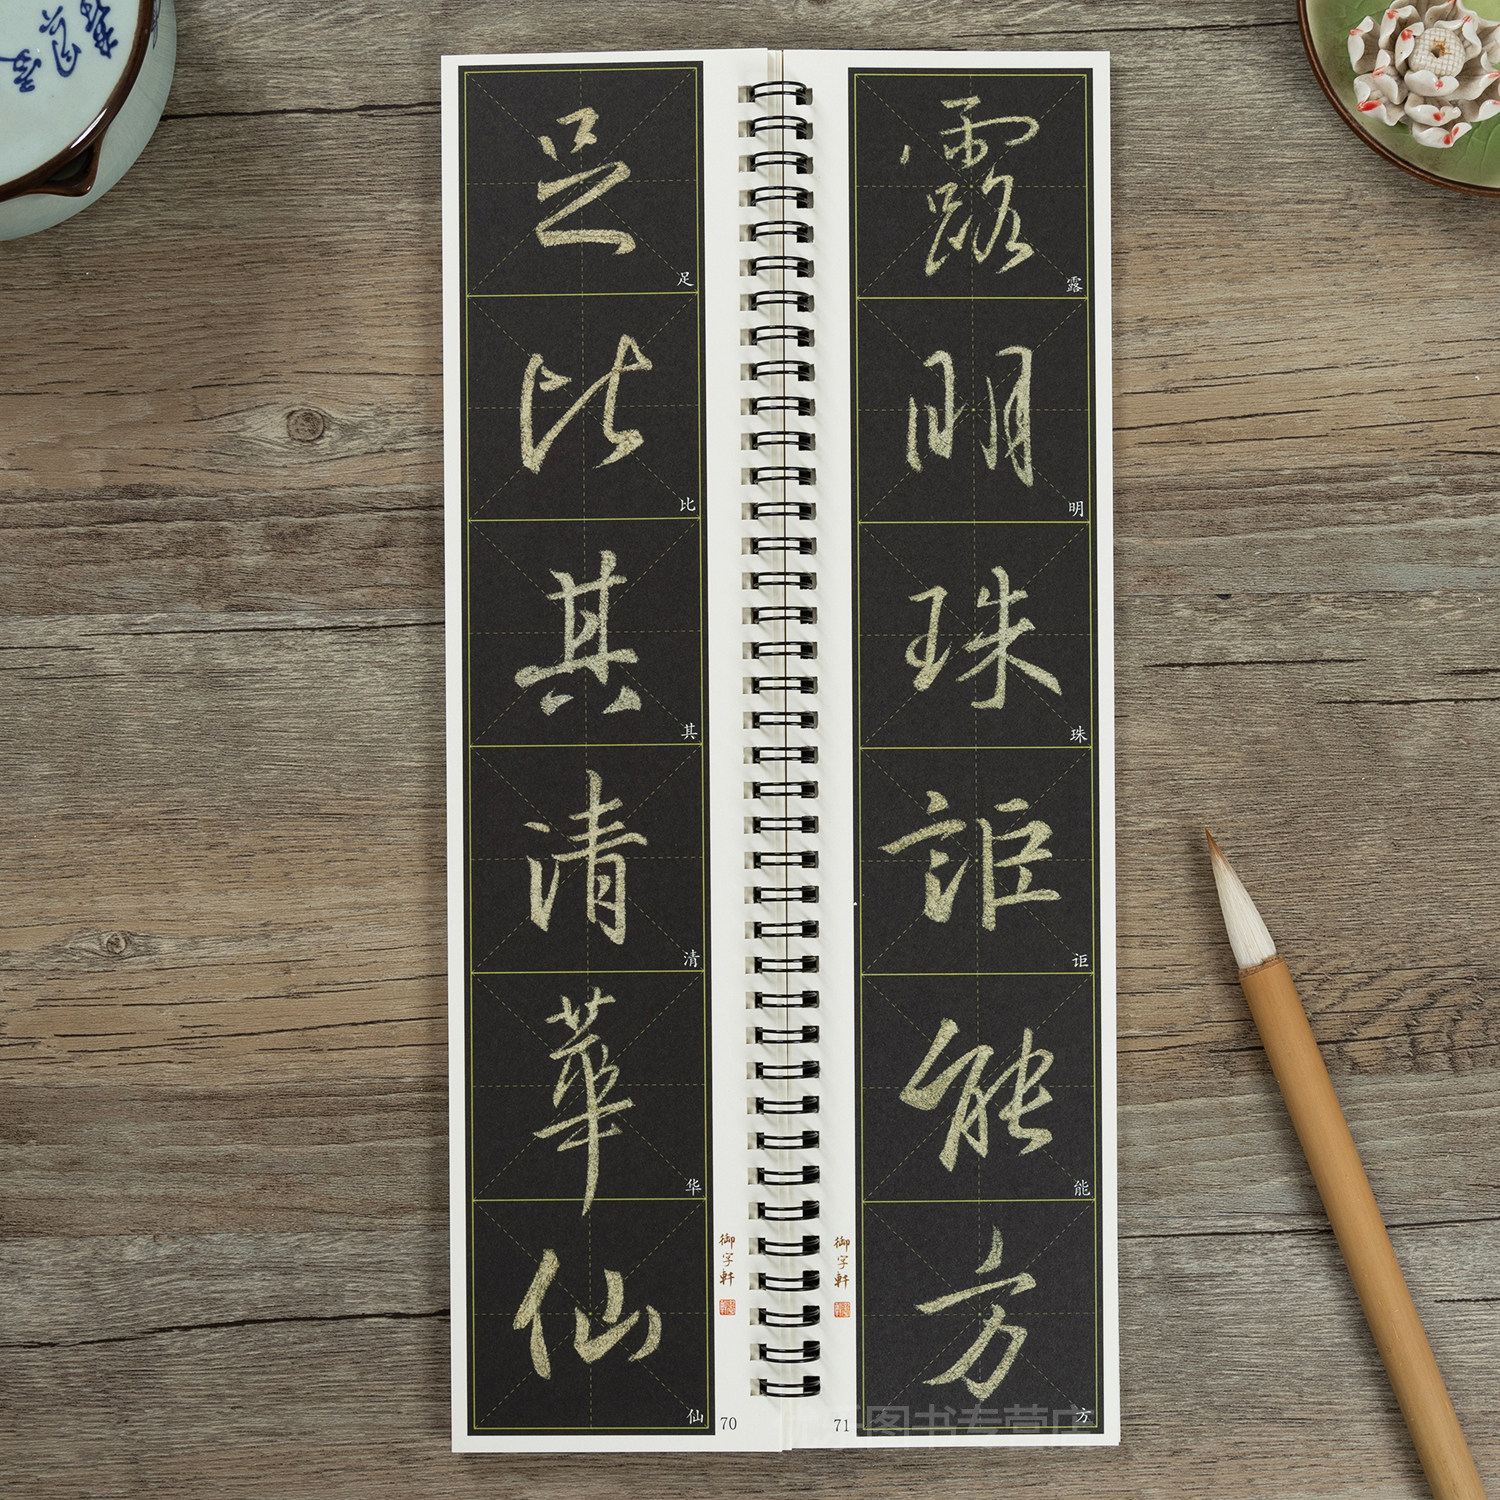 足
足
比
比
其
其
清
清
華
华
仙
仙
御字軒
70
露
露
明
明
珠
珠
詎
讵
能
能
方
方
御字軒
71
图书专营店